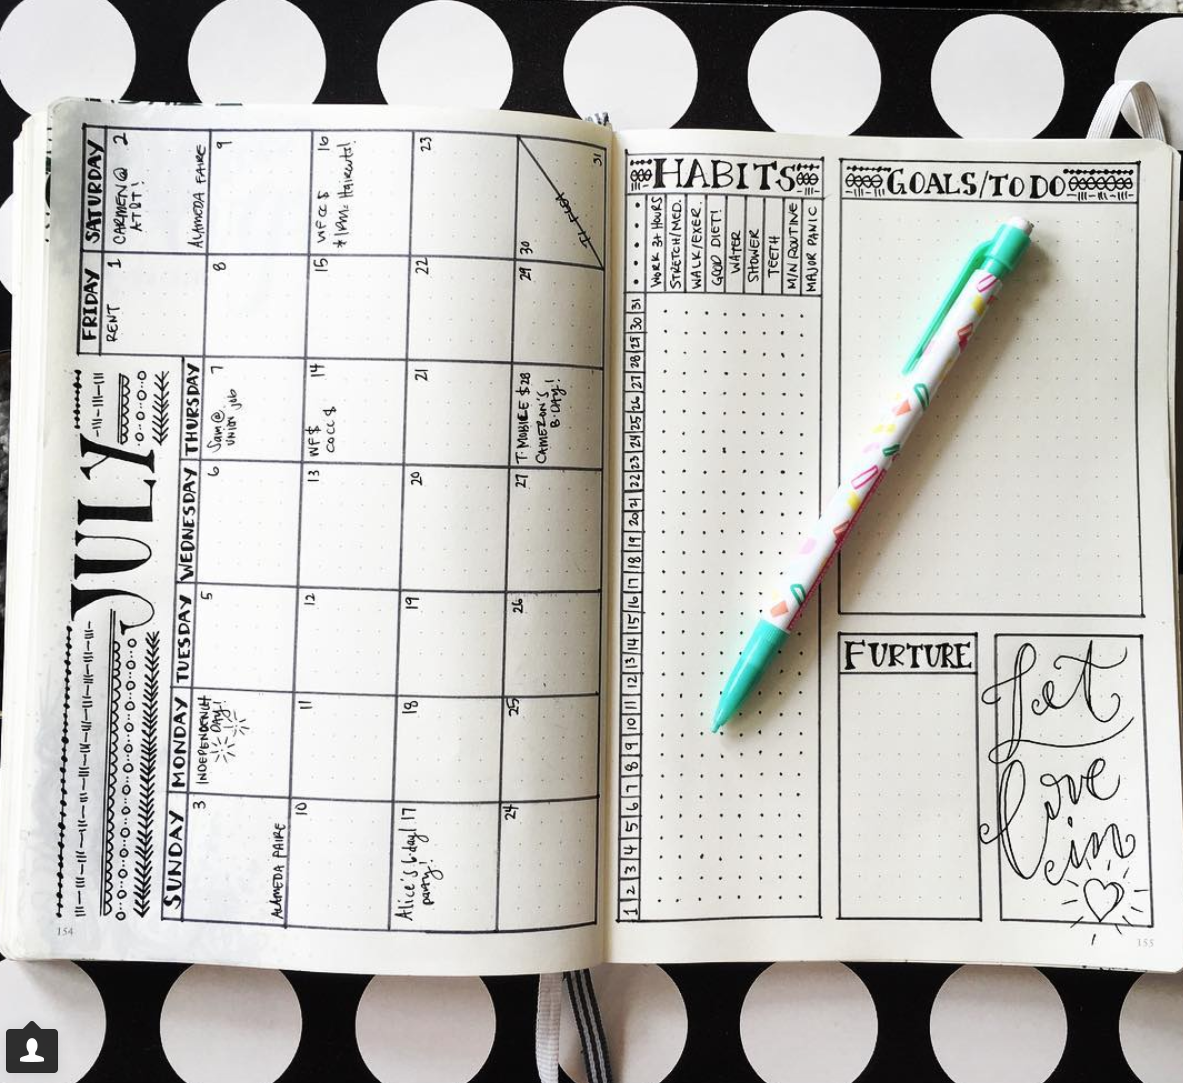 JULY
SUNDAY
MONDAY
TUESDAY
WEDNESDAY
THURSDAY
FRIDAY
SATURDAY
1
RENT
2
CARMEN @
3
4
INDEPENDENCE
DAY!
5
6
7
Sam @
union job
8
9
ALAMEDA FAIRE
10
ALAMEDA FAIRE
11
12
13
14
WF $
COCC $
15
16
*1PM: Haircuts!
17
Alice's b.day
party!
18
19
20
21
22
23
24
25
26
27
28
T-MOBILE $
CAMERON'S
B-DAY!
29
30
31
154
HABITS
WORK 3+ HOURS
STRETCH/MED.
WALK/EXER.
GOOD DIET!
WATER
SHOWER
TEETH
M/N ROUTINE
MAJOR PANIC
1 2 3 4 5 6 7 8 9 10 11 12 13 14 15 16 17 18 19 20 21 22 23 24 25 26 27 28 29 30 31
GOALS/TO DO
FURTURE
Let
love
in
155